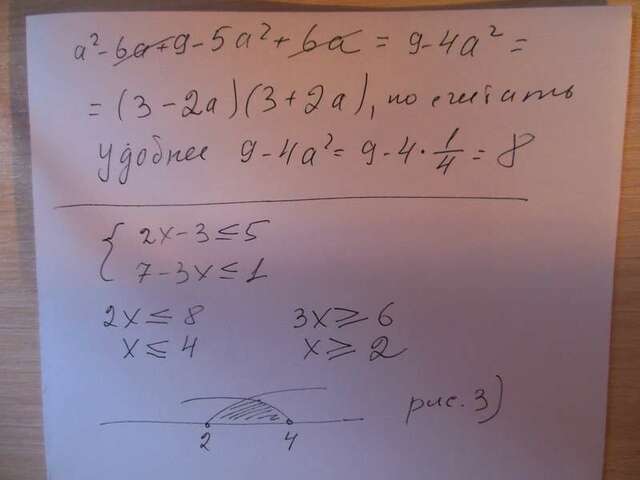 a² - 6a + 9 - 5a² + 6a = 9 - 4a² =
= (3 - 2a)(3 + 2a), но считать
удобнее 9 - 4a² = 9 - 4 · 1/4 = 8
{ 2x - 3 ≤ 5
7 - 3x ≤ 1
2x ≤ 8 3x ≥ 6
x ≤ 4 x ≥ 2
рис. 3)
2 4